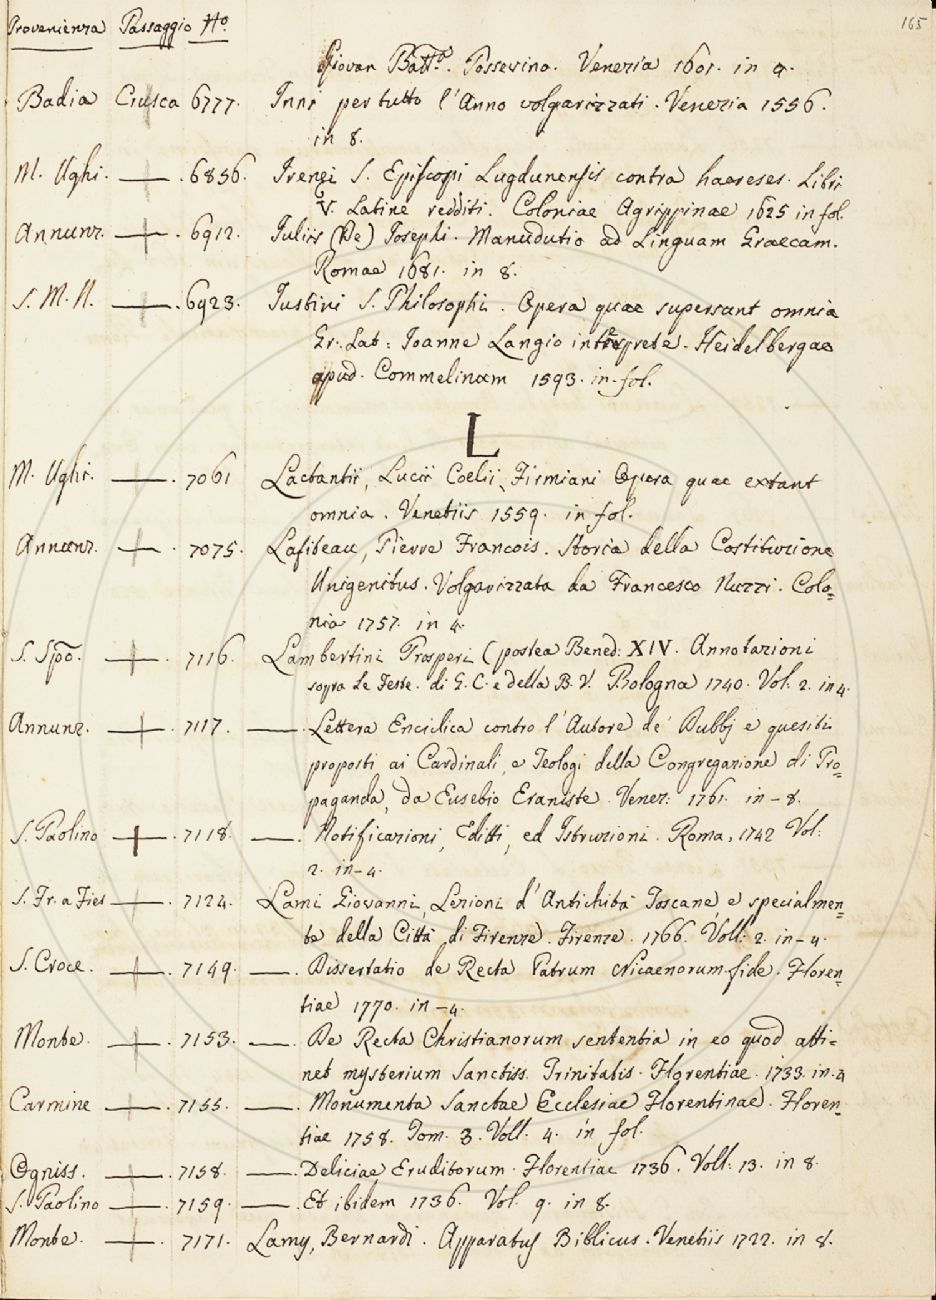 165
Provenienza Passaggio No.
Giovan Batta. Possevino. Venezia 1601. in 4.
Badia Crusca 6777. Inni per tutto l'Anno volgarizzati. Venezia 1556.
in 8.
M. Ughi. — . 6856. Irenei S. Episcopi Lugdunensis contra haereses. Libri
V. Latine redditi. Coloniae Agrippinae 1625 in fol.
Annunz. — . 6912. Iuliis (De) Josephi. Manuductio ad Linguam Graecam.
Romae 1681. in 8.
S. M. N. — . 6923. Iustini S. Philosophi. Opera quae supersunt omnia
Gr. Lat: Joanne Langio interprete. Heidelbergae
apud. Commelinum 1593. in fol.
L
M. Ughi. — . 7061 Lactantii, Lucii Coelii, Firmiani Opera quae extant
omnia. Venetiis 1559. in fol.
Annunz. — . 7075. Lafiteau, Pierre Francois. Storia della Costituzione
Unigenitus. Volgarizzata da Francesco Nuzzi. Colo=
nia 1757. in 4.
S. Spo. — . 7116. Lambertini Prosperi (postea Bened: XIV. Annotazioni
sopra le Feste. di G. C. e della B. V. Bologna 1740. Vol. 2. in 4.
Annunz. — . 7117. — . Lettera Enciclica contro l'Autore de' Dubbj e quesiti
proposti ai Cardinali, e Teologi della Congregazione di Pro=
paganda, da Eusebio Eraniste. Venez: 1761. in – 8.
S. Paolino — . 7118. — . Notificazioni, Editti, ed Istruzioni. Roma, 1742 Vol:
2. in – 4.
S. Fr. a Fies — . 7124. Lami Giovanni, Lezioni d'Antichità Toscane, e specialmen=
te della Città di Firenze. Firenze. 1766. Voll: 2. in – 4.
S. Croce. — . 7149. — . Dissertatio de Recta Patrum Nicaenorum fide. Floren=
tiae 1770. in – 4.
Monte. — . 7153. — . De Recta Christianorum sententia in eo quod atti=
net mysterium Sanctiss. Trinitatis. Florentiae. 1733. in. 4
Carmine — . 7155. — . Monumenta Sanctae Ecclesiae Florentinae. Floren=
tiae 1758. Tom. 3. Voll. 4. in fol.
Ogniss. — . 7158. — . Deliciae Eruditorum. Florentiae 1736. Voll: 13. in 8.
S. Paolino — . 7159. — . Et ibidem 1736. Vol. 9. in 8.
Monte. — . 7171. Lamy, Bernardi. Apparatus Biblicus. Venetiis 1722. in 8.